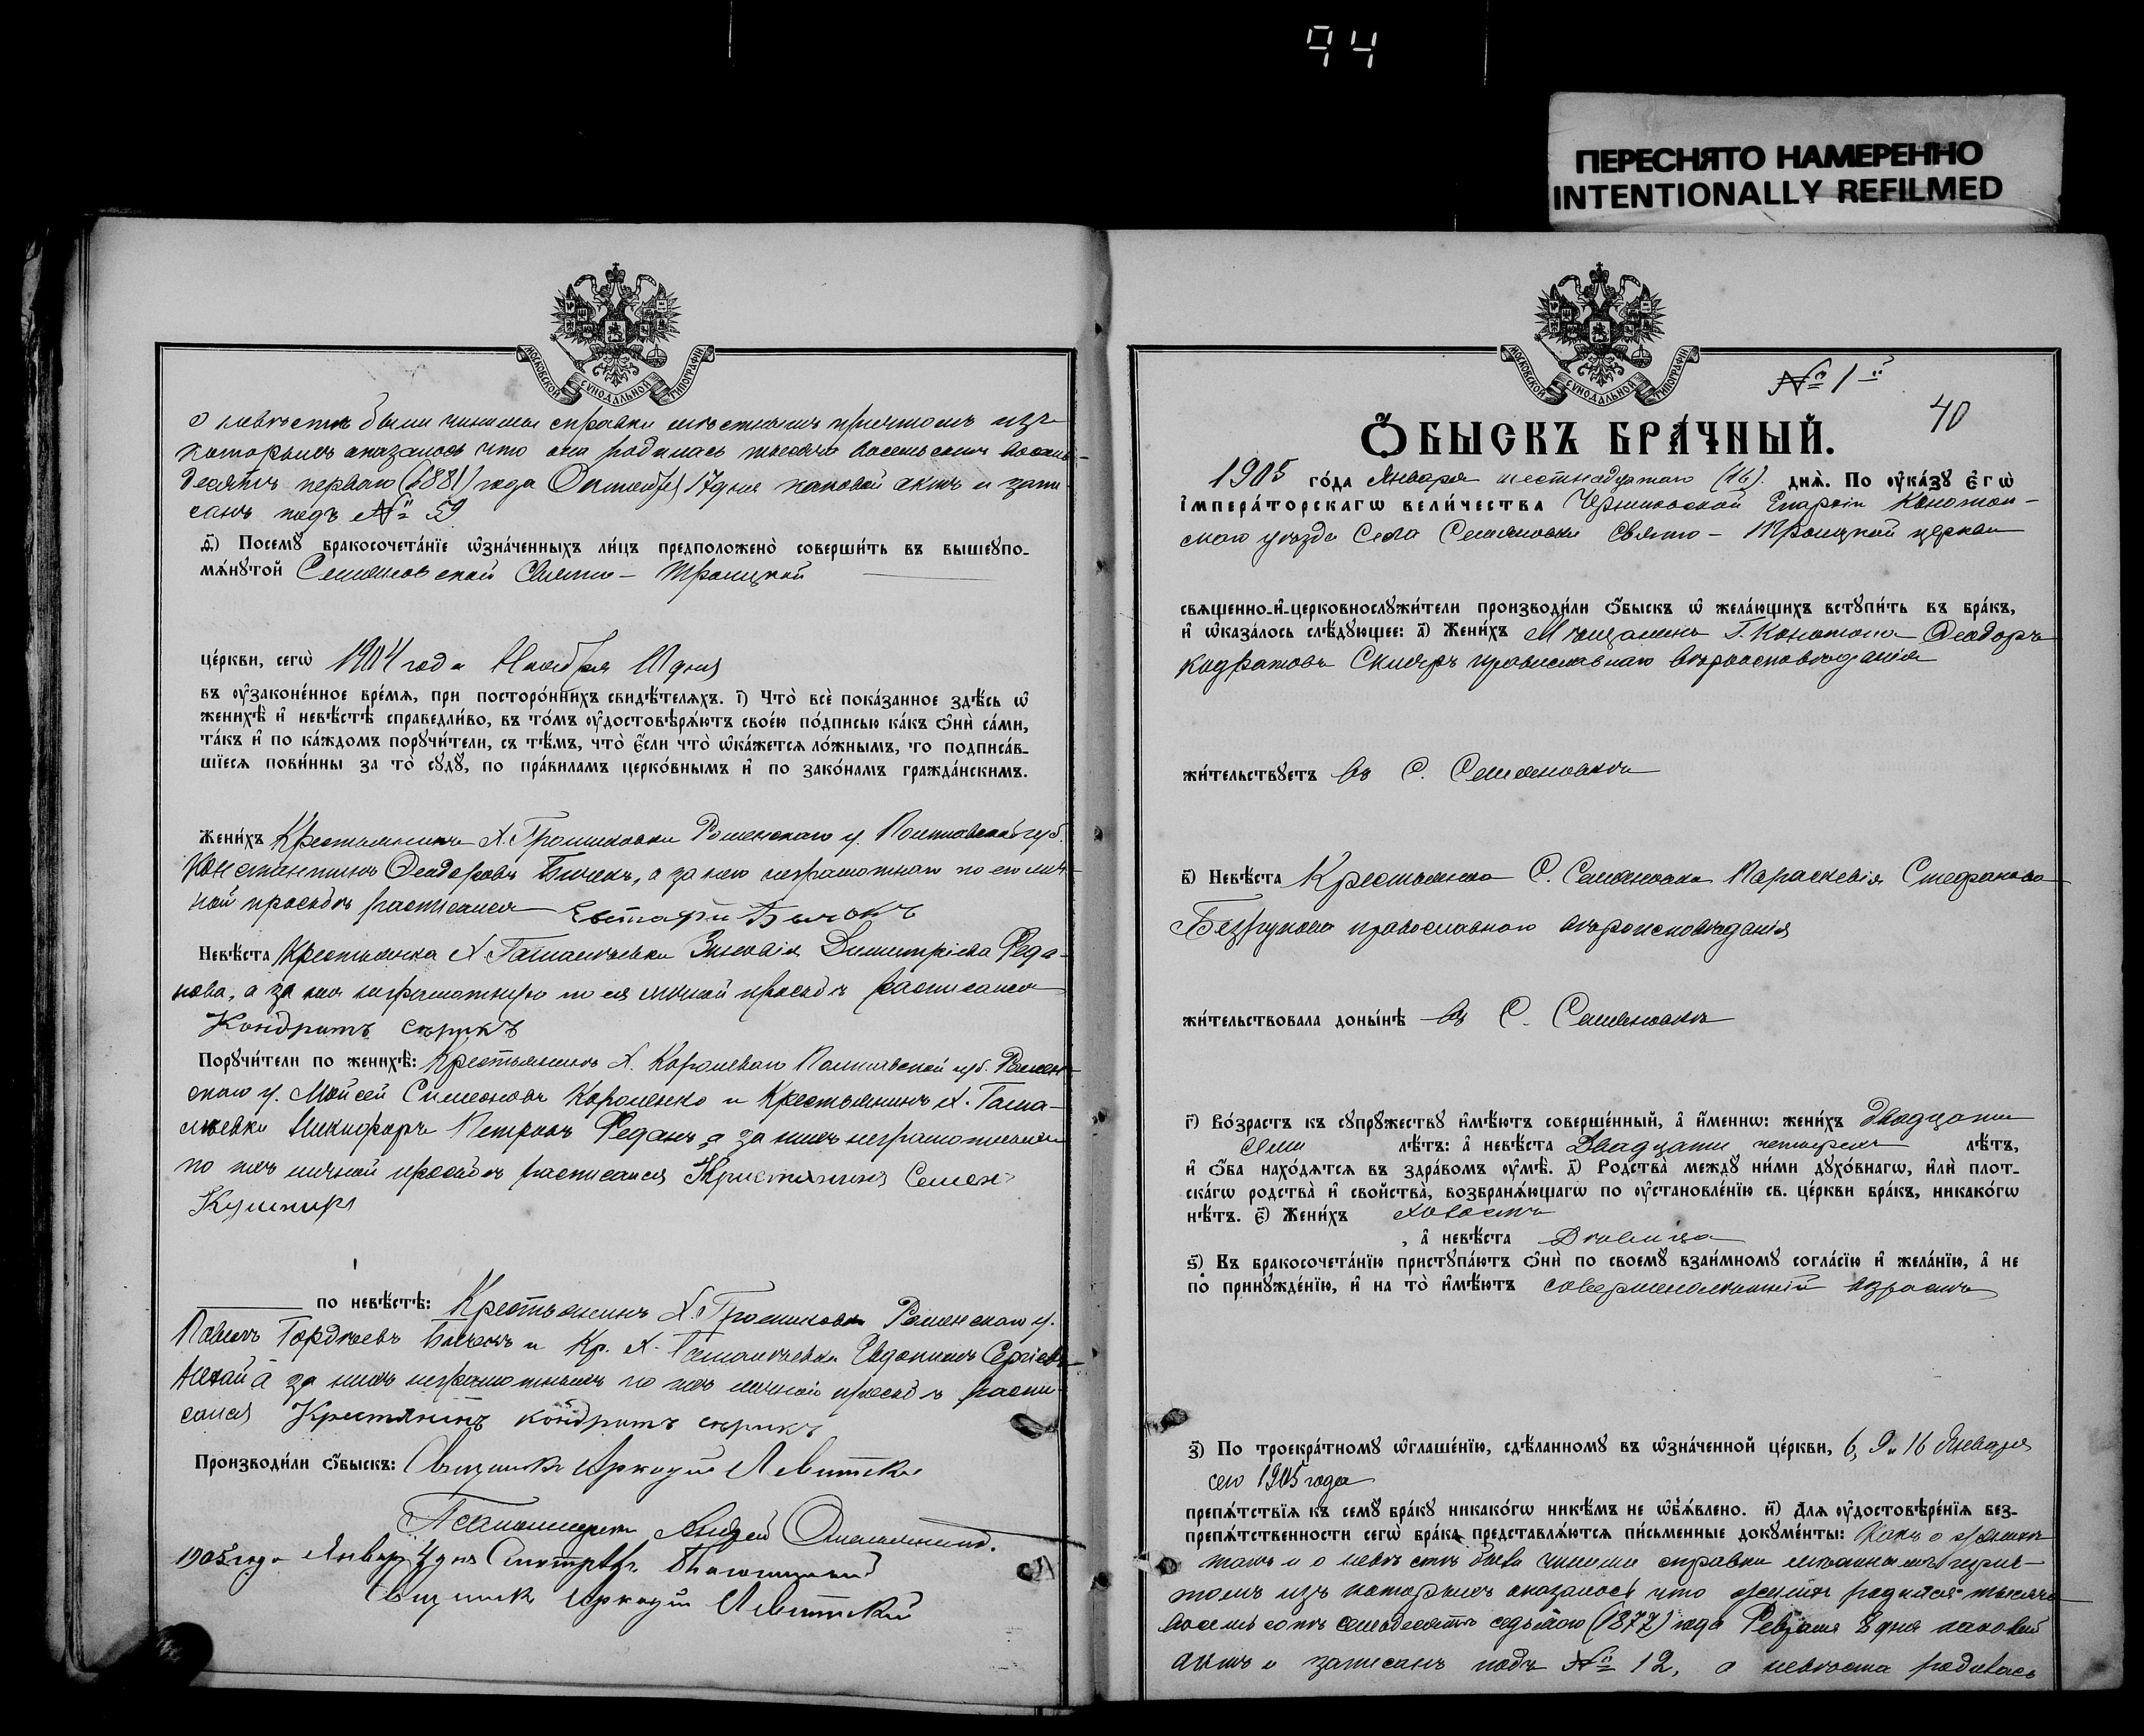 94
ПЕРЕСНЯТО НАМЕРЕННО
INTENTIONALLY REFILMED
МОСКОВСКОЙ СѴНОДАЛЬНОЙ ТИПОГРАФІИ
о невѣстѣ были чинимы справки мѣстнымъ причтомъ изъ
которыхъ оказалось что она родилась тысяча восемьсотъ восемь-
десятъ перваго (1881) года Октября 17 дня каковой актъ и запи-
санъ подъ № 59
ѳ҃) Посемꙋ̀ бракосочета́нїе ѡ҆зна́ченныхъ ли́цъ предположено̀ соверши́ть въ вышеꙋпо-
мѧ́нꙋтой Семеновской Свято-Троицкой
це́ркви, сегѡ̀ 1904 года Ноября 10 дня
въ ᲂу҆законе́нное вре́мѧ, при посторо́ннихъ свидѣ́телѧхъ. і҃) Что̀ всѐ пока́занное здѣ́сь ѡ҆
женихѣ̀ и҆ невѣ́стѣ справедли́во, въ то́мъ ᲂу҆достовѣрѧ́ютъ свое́ю по́дписью ка́къ ѻ҆нѝ са́ми,
та́къ и҆ по ка́ждомъ порꙋчи́тели, съ тѣ́мъ, что̀ є҆́сли что̀ ѡ҆ка́жетсѧ ло́жнымъ, то подписа́в-
шїесѧ пови́нны за то̀ сꙋдꙋ̀, по пра́виламъ церко́внымъ и҆ по зако́намъ гражда́нскимъ.
Жени́хъ Крестьянинъ Х. Громиковки Роменскаго у. Полтавской губ.
Константинъ Ѳеодоровъ Бычекъ, а за него неграмотнаго по его лич-
ной просьбѣ расписался Евстафи Бычокъ
Невѣ́ста Крестьянка Х. Зиновія Димитріева Реда-
нова, а за нея неграмотную по ея личной просьбѣ расписался
Кондратъ серикъ
Порꙋчи́тели по женихѣ̀: Крестьянинъ Х. Полтавской губ. Ромен-
скаго у. Мойсей Симеоновъ Короленко и Крестьянинъ Х.
Никифоръ Петровъ Реданъ, а за нихъ неграмотныхъ
по ихъ личной просьбѣ расписался Семен
Кушниръ
по невѣ́стѣ: Крестьянинъ Х. Громиковки Роменскаго у.
Павелъ Гордѣевъ Бычекъ и Кр. Х. Евдокимъ Сергіевъ
а за нихъ неграмотныхъ по ихъ личной просьбѣ распи-
сался Крестянинъ кондратъ серикъ
Производи́ли ѻ҆́быскъ: Священникъ Аркадій Левитскій
Псаломщикъ Андрей
1905 года Января 4 дня Смотрѣлъ Благочинный
Священникъ Аркадій Левитский
МОСКОВСКОЙ СѴНОДАЛЬНОЙ ТИПОГРАФІИ
№ 1й
40
Ѻ҆́БЫСКЪ БРА́ЧНЫЙ.
1905 го́да Января шестнадцатаго (16). днѧ̀. По ᲂу҆ка́зꙋ Є҆гѡ̀
І҆мпера́торскагѡ вели́чества Черниговской Епархіи Конотоп-
скаго уѣзда Села Семеновки Свято-Троицкой церкви
свѧщенно-и҆-церковнослꙋжи́тели производи́ли ѻ҆́быскъ ѡ҆ жела́ющихъ встꙋпи́ть въ бра́къ,
и҆ ѡ҆каза́лось слѣ́дꙋющее: а҃) Жени́хъ Мѣщанинъ Г. Конотопа Ѳеодоръ
Кодратовъ Скляръ православнаго вѣроисповѣданія
жи́тельствꙋетъ въ С. Семеновкѣ
в҃) Невѣ́ста Крестьянка С. Семеновки Параскевія Стефанова
православнаго вѣроисповѣданія
жи́тельствовала доны́нѣ въ С. Семеновкѣ
г҃) Во́зрастъ къ сꙋпрꙋ́жествꙋ и҆мѣ́ютъ соверше́нный, а҆ и҆́меннѡ: жени́хъ двадцати
семи лѣ́тъ: а҆ невѣ́ста двадцати четырехъ лѣ́тъ,
и҆ ѻ҆́ба нахо́дѧтсѧ въ здра́вомъ ᲂу҆мѣ̀. д҃) Родства̀ междꙋ̀ ни́ми дꙋхо́внагѡ, и҆лѝ плот-
ска́гѡ родства̀ и҆ сво́йства̀, возбранѧ́ющагѡ по ᲂу҆становле́нїю св. це́ркви бра́къ, никако́гѡ
нѣ́тъ. є҃) Жени́хъ холостъ
, а҆ невѣ́ста Дѣвица
ѕ҃) Въ бракосочета́нїю пристꙋпа́ютъ ѻ҆нѝ по своемꙋ̀ взаи́мномꙋ согла́сїю и҆ жела́нїю, а҆ не
по принꙋжде́нїю, и҆ на то̀ и҆мѣ́ютъ совершеннолѣтній возрастъ
з҃) По троекра́тномꙋ ѡ҆глаше́нїю, сдѣ́ланномꙋ въ ѡ҆зна́ченной це́ркви, 6, 9 и 16 Января
сего 1905 года
препѧ́тствїѧ къ семꙋ̀ бра́кꙋ никако́гѡ никѣ́мъ не ѡ҆б̾ѧ́влено. и҃) Длѧ ᲂу҆достовѣре́нїѧ без-
препѧ́тственности сегѡ̀ бра́ка представлѧ́ютсѧ пи́сьменные докꙋме́нты: Какъ о женихѣ
такъ и о невѣстѣ были чинимы справки мѣстнымъ прич-
томъ изъ которыхъ оказалось что женихъ родился тысяча
восемьсотъ семьдесятъ седьмого (1877) года Февраля 8 дня каковой
актъ и записанъ подъ № 12, а невѣста родилась